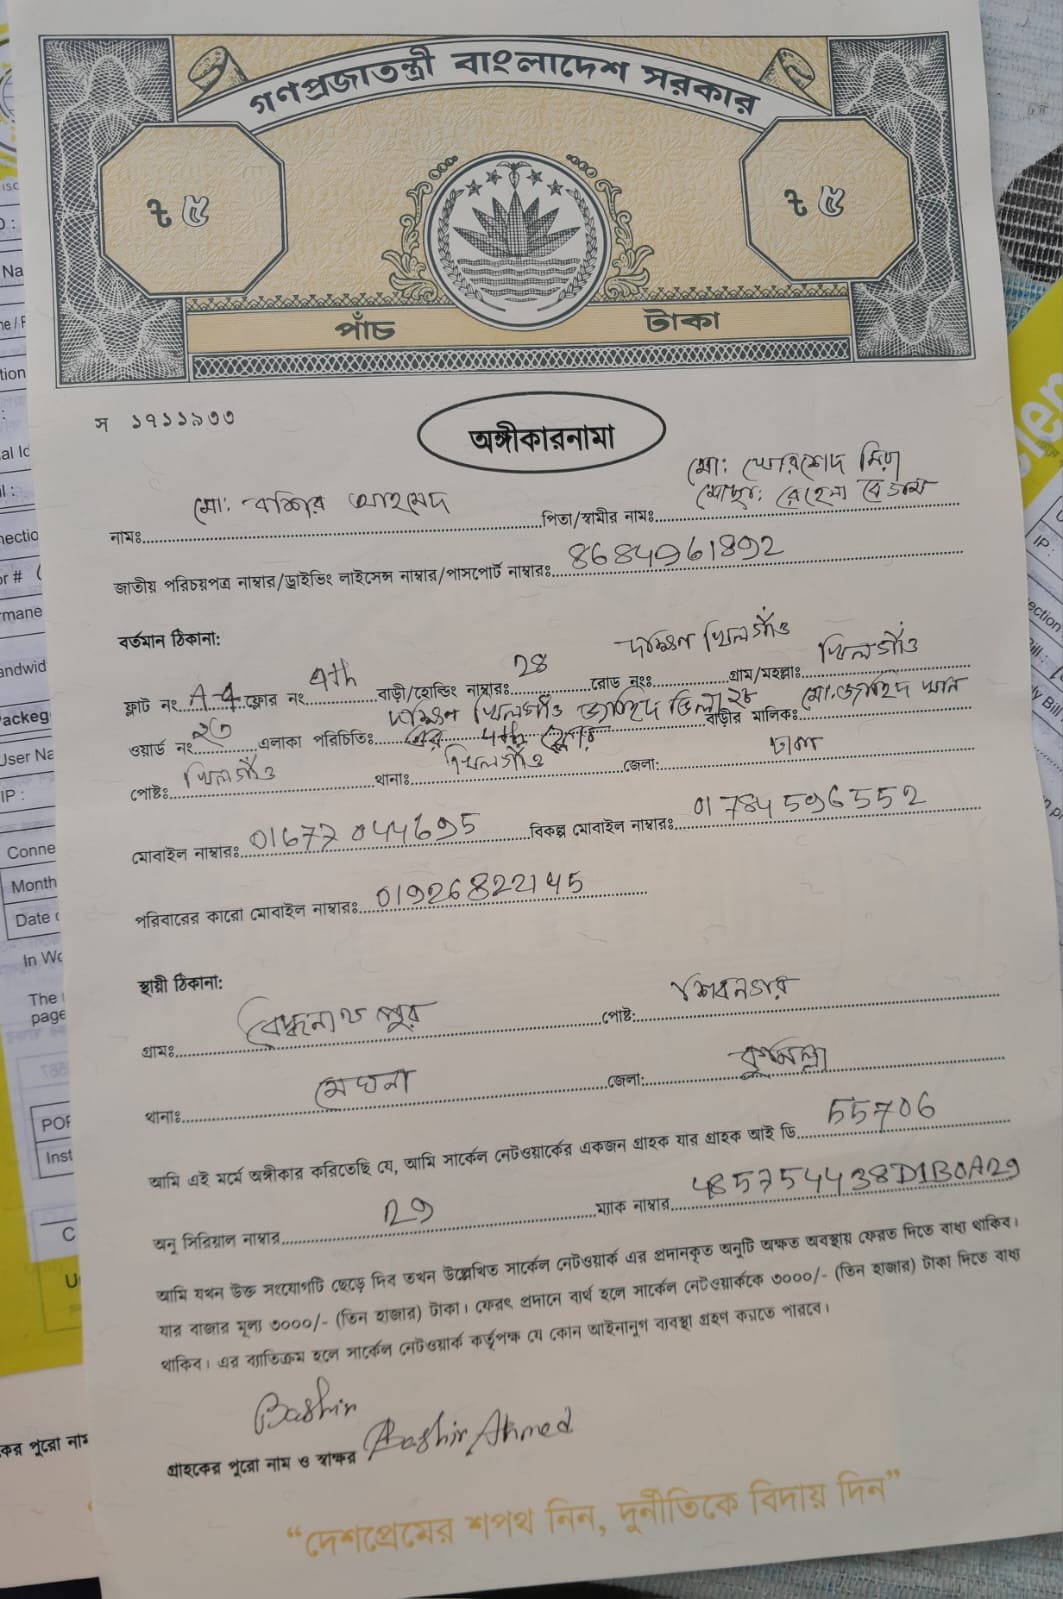 গণপ্রজাতন্ত্রী বাংলাদেশ সরকার
৳ ৫
৳ ৫
পাঁচ টাকা
স ১৭১১৯৩৩
অঙ্গীকারনামা
নামঃ মো: বশির আহমেদ পিতা/স্বামীর নামঃ মো: খোরশেদ মিয়া
মোছা: রেহেনা বেগম
জাতীয় পরিচয়পত্র নাম্বার/ড্রাইভিং লাইসেন্স নাম্বার/পাসপোর্ট নাম্বারঃ 8684961892
বর্তমান ঠিকানা:
ফ্লাট নং A-4 ফ্লোর নং 4th বাড়ী/হোল্ডিং নাম্বারঃ রোড নংঃ দক্ষিণ খিলগাঁও গ্রাম/মহল্লাঃ খিলগাঁও
ওয়ার্ড নং এলাকা পরিচিতিঃ দক্ষিণ খিলগাঁও জাহিদ ভিলা ২৮ এর 4th ফ্লোর বাড়ীর মালিকঃ মো. জাহিদ খান
পোষ্টঃ খিলগাঁও থানাঃ খিলগাঁও জেলা: ঢাকা
মোবাইল নাম্বারঃ 01677044695 বিকল্প মোবাইল নাম্বারঃ 01784596552
পরিবারের কারো মোবাইল নাম্বারঃ 01926822145
স্থায়ী ঠিকানা:
গ্রামঃ পোষ্ট: শিবনগর
থানাঃ মেঘনা জেলা: কুমিল্লা
আমি এই মর্মে অঙ্গীকার করিতেছি যে, আমি সার্কেল নেটওয়ার্কের একজন গ্রাহক যার গ্রাহক আইডি 55706
অনু সিরিয়াল নাম্বার 29 ম্যাক নাম্বার 485754438D1B0A29
আমি যখন উক্ত সংযোগটি ছেড়ে দিব তখন উল্লেখিত সার্কেল নেটওয়ার্ক এর প্রদানকৃত অনুটি অক্ষত অবস্থায় ফেরত দিতে বাধ্য থাকিব।
যার বাজার মূল্য ৩০০০/- (তিন হাজার) টাকা। ফেরৎ প্রদানে ব্যর্থ হলে সার্কেল নেটওয়ার্ককে ৩০০০/- (তিন হাজার) টাকা দিতে বাধ্য
থাকিব। এর ব্যতিক্রম হলে সার্কেল নেটওয়ার্ক কর্তৃপক্ষ যে কোন আইনানুগ ব্যবস্থা গ্রহণ করতে পারবে।
Bashir
গ্রাহকের পুরো নাম ও স্বাক্ষর Bashir Ahmed
“দেশপ্রেমের শপথ নিন, দুর্নীতিকে বিদায় দিন”